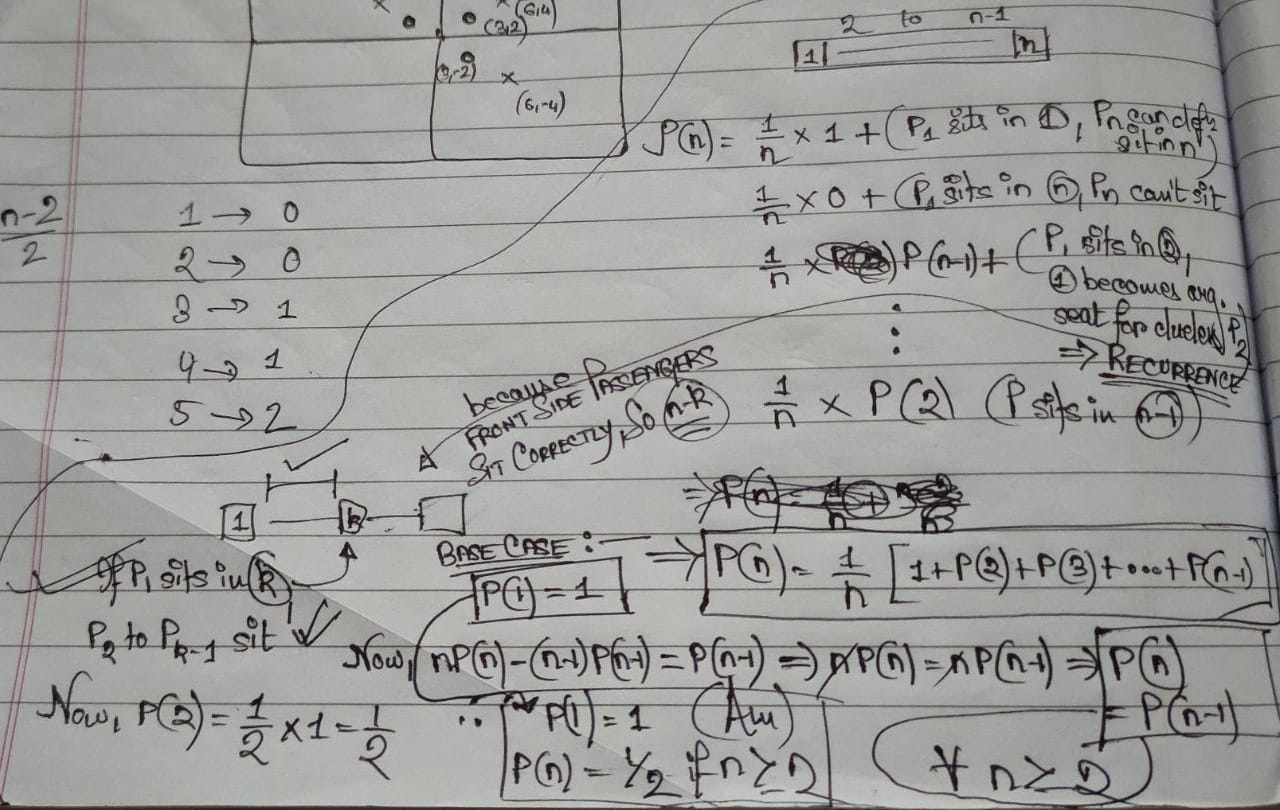 (6,4)
(3,2)
(3,-2)
(6,-4)
2 to n-1
1 n
P(n) = 1/n × 1 + (P₁ sits in ①, Pn can defy sit in n)
1/n × 0 + (P₁ sits in ⓝ, Pn can't sit
1/n × P(n-1) + (P₁ sits in ②,
① becomes org.
seat for clueless P₂)
⇒ RECURRENCE
n-2/2
1 → 0
2 → 0
3 → 1
4 → 1
5 → 2
because PASSENGERS
FRONT SIDE
SIT CORRECTLY, So n-k
1/n × P(2) (P sits in n-1)
⇒ P(n) =
1 k
If P₁ sits in k
P₂ to Pk-1 sit ✓
BASE CASE :-
P(1) = 1
⇒ P(n) = 1/n [1+P(2)+P(3)+...+P(n-1)]
Now, nP(n)-(n-1)P(n-1) = P(n-1) ⇒ nP(n) = nP(n-1) ⇒ P(n) = P(n-1)
∀ n ≥ 2
Now, P(2) = 1/2 × 1 = 1/2
∴ P(1) = 1 (Ans)
P(n) = 1/2 if n ≥ 2